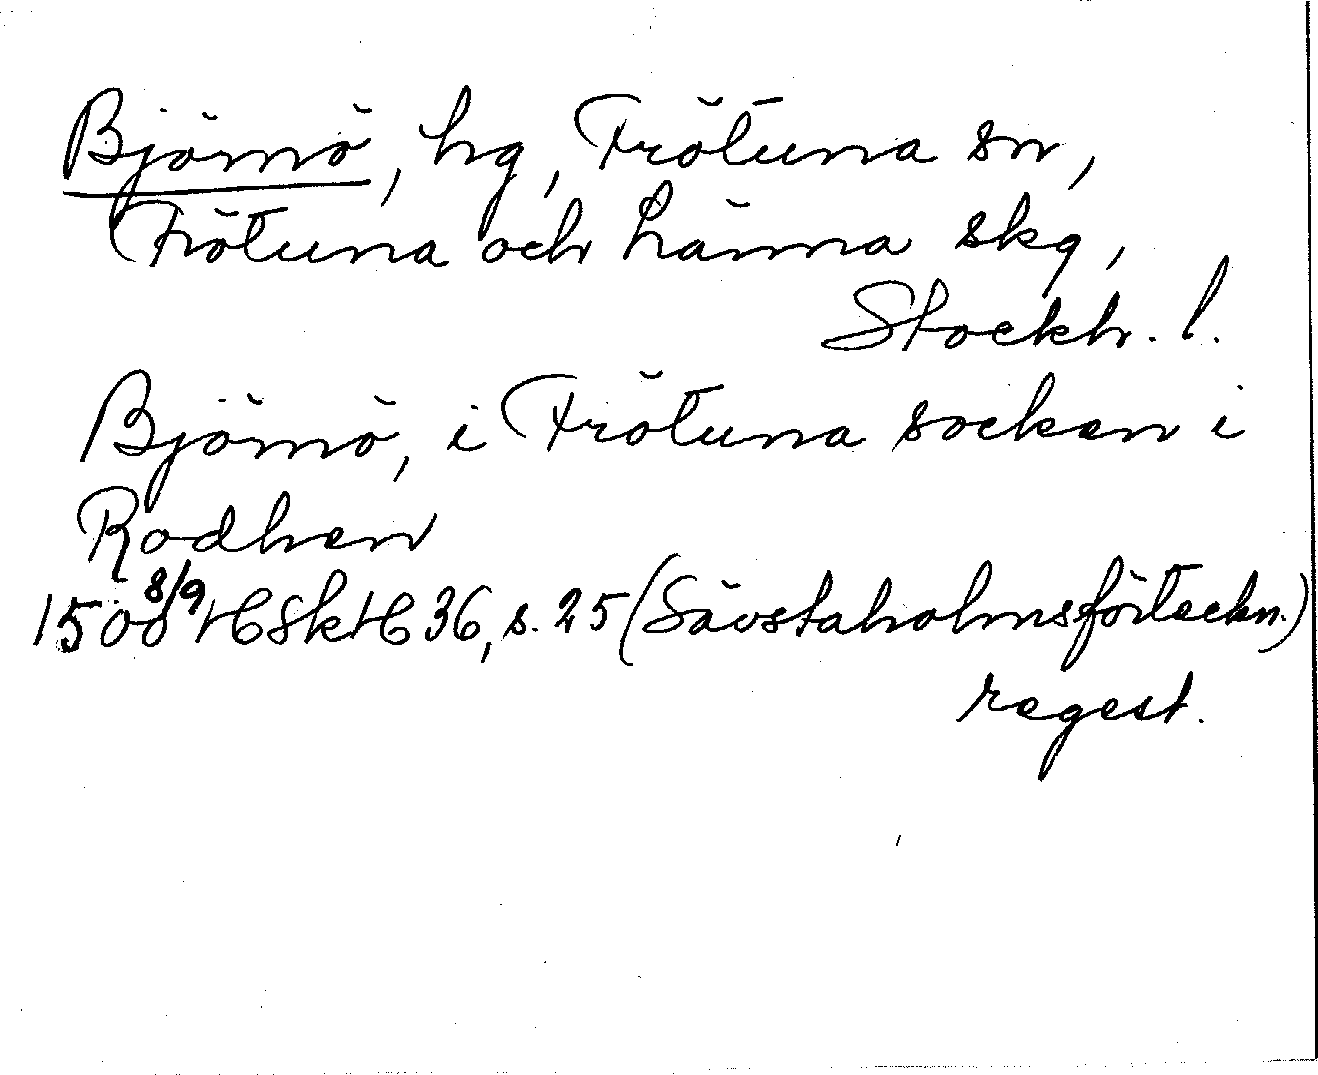 Björnö, hg, Frötuna sn,
Frötuna och Länna skg,
Stockh. l.
Björnö, i Frötuna socken i
Rodhen
1508 8/9 HSkH 36, s. 25 (Sävstaholmsförteckn.)
regest.